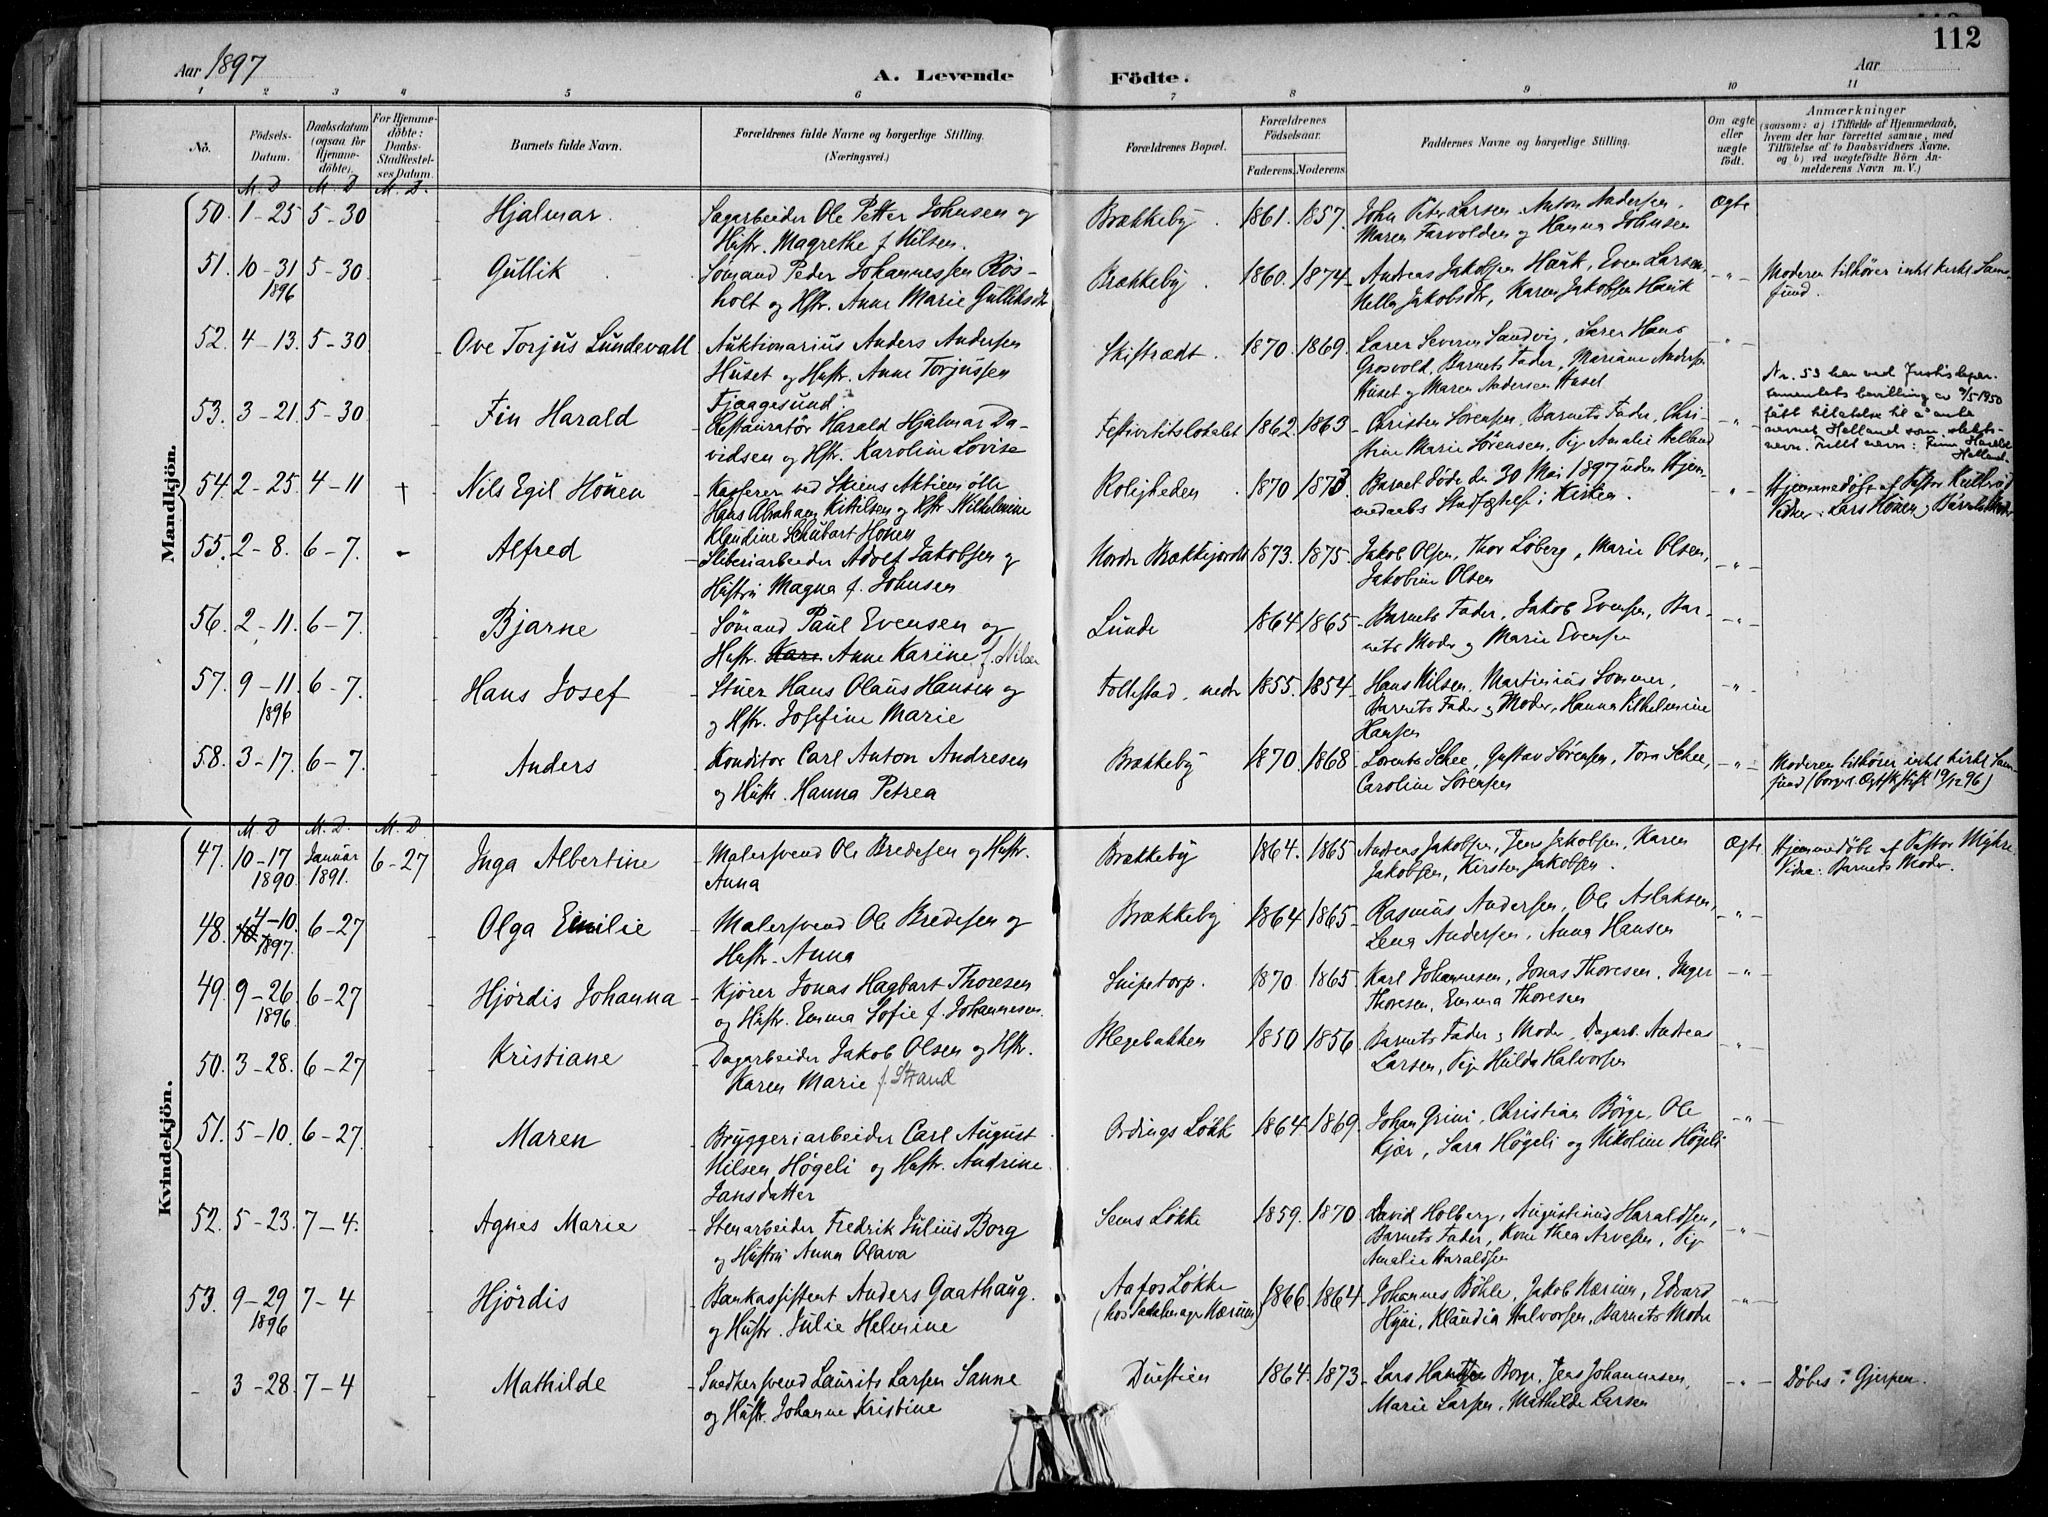 112
Aar 1897
A. Levende Födte.
Aar
1 2 3 4 5 6 7 8 9 10 11
No.
Födsels-Datum.
Daabsdatum (ogsaa for Hjemmedöbte).
For Hjemmedöbte: Daabs-Stadfæstelses Datum.
Barnets fulde Navn.
Forældrenes fulde Navne og borgerlige Stilling.
(Næringsvei.)
Forældrenes Bopæl.
Forældrenes Födselsaar.
Faderens. Moderens.
Faddernes Navne og borgerlige Stilling.
Om ægte eller uægte födt.
Anmærkninger
(saasom: a) i Tilfælde af Hjemmedaab, hvem der har forrettet samme, med Tilföielse af to Daabsvidners Navne. og b) ved uægtefödte Börn Anmelderens Navn m. V.)
M. D M. D M. D.
Mandkjön.
50. 1-25 5-30 Hjalmar. Sagarbeider Ole Petter Johnsen og Brækkeby. 1861. 1857. John Peter Larsen, Anton Andersen, Ægte
Hustr. Magrethe f. Nilsen. Maren Farvolden og Hanna Johnsen
51. 10-31 5-30 Gullik Sømand Peder Johannessen Røs- Brækkeby. 1860. 1874 Andreas Jakobsen Hauk, Even Larsen, -"- Moderen tilhører intet kirkl. Sam-
1896 holt og Hstr. Anne Marie Gulliksdtr Nella Jakobsdtr, Karen Jakobsen Hauk fund.
52. 4-13. 5-30 Ove Torjus Lundevall Auktionarius Anders Andersen 1870. 1869. Lærer Severin Sandvig, Lærer Hans -"-
Huset og Hustr. Anne Torjussen Grosvold, Barnets Fader, Mariane Anders
Fjaagesund. Huset og Maren Andersen Huset
53. 3-21. 5-30 Fin Harald Restauratør Harald Hjalmar Da- Festivitetslokalet 1862. 1863 Christen Sørensen, Barnets Fader, Chri- -"-
vidsen og Hstr. Karoline Lovise stine Marie Sørensen, Pige Amalie Helland
Nr. 53 har ved Justisdepar-
tementets bevilling av 9/5 1950
fått tillatelse til å anta
navnet Helland som slekts-
navn. Fullt navn: Finn Harald
Helland.
54. 2-25. 4-11 † Nils Egil Houen Kasserer ved Skiens Aktieøllbr. Roligheden. 1870 1873 Barnet døde den 30 Mai 1897 uden Hjem- -"- Hjemmedøbt af Pastor
Hans Abraham Kittilsen og Hstr Wilhelmine medaabs Stadfæstelse i Kirken. Vidner: Lars Houen og Barnets Moder
Klaudine Schubart Houen
55. 2-8. 6-7 - Alfred Sliberiarbeider Adolf Jakobsen og Nordre Brækkejordet 1873. 1875. Jakob Olsen, Thor Løberg, Marie Olsen, -"-
Hustru Magna f. Johnsen Jakobine Olsen
56. 2-11. 6-7. Bjarne Sømand Paul Evensen og Lunde 1864 1865 Barnets Fader, Jakob Evensen, Bar- -"-
Hustr. Kare Anne Karine f. Nilsen nets Moder og Marie Evensen
57. 9-11 6-7. Hans Josef Stuer Hans Olaus Hansen og Follestad, nedre 1855. 1854 Hans Nilsen, Martinius Sommer, -"-
1896 og Hstr. Josefine Marie Barnets Fader og Moder, Hanna Vilhelmine
Hansen
58. 3-17. 6-7. Anders Konditor Carl Anton Andresen Brækkeby 1870. 1868 Lorents Schee, Gustav Sørensen, Tora Schee, -"- Moderen tilhører intet kirkl. Sam-
og Hustr. Hanna Petrea Caroline Sørensen fund (borgerl. Ægtsk. stift. 19/12 96)
M. D M. D. M. D.
Kvindekjön.
47. 10-17 Januar 6-27 Inga Albertine Malersvend Ole Bredesen og Hustr. Brækkeby 1864. 1865 Andreas Jakobsen, Jens Jakobsen, Karen Ægte Hjemmedøbt af Pastor Myhre
1890 1891. Anna Jakobsen, Kirsten Jakobsen. Vidne: Barnets Moder.
48. 4-10. 6-27 Olga Emilie Malersvend Ole Bredesen og Brækkeby 1864 1865 Rasmus Andersen, Ole Aslaksen, -"-
1897. Hustr. Anna Lena Andersen, Anna Hansen
49. 9-26 6-27 Hjördis Johanna Kjører Jonas Hagbart Thoresen Snipetorp. 1870 1865 Karl Johannesen, Jonas Thoresen, Inger -"-
1896 og Hustr. Emma Sofie f. Johannesen. Thoresen, Emma Thoresen
50. 3-28. 6-27 Kristiane Dagarbeider Jakob Olsen og Hstr. Blegebakken 1850 1856 Barnets Fader og Moder, Dagarb. Andreas -"-
Karen Marie f. Strand Larsen, Pige Hulda Halvorsen
51. 5-10. 6-27. Maren Bryggeriarbeider Carl August Ordings Løkk 1864 1869. Johan Grini, Christian Börge, Ole -"-
Nilsen Högeli og Hustr. Andrine Kjær, Sara Högeli og Nikoline Högeli
Jansdatter
52. 5-23. 7-4. Agnes Marie Stenarbeider Fredrik Julius Borg Sems Løkke 1859. 1870 David Holberg, Augustinus Haraldsen, -"-
og Hustru Anna Olava Barnets Fader, Kone Thea Arvesen, Pige
Amalie Haraldsen
53. 9-29 7-4 Hjördis Bankassistent Anders Gaathaug. Aafos Løkke 1866 1864 Johannes Böhle, Jakob Nærum, Edvard -"-
1896 og Hustr. Julie Helmine (hos Sadelmager Nærum) Klaudia Halvorsen, Barnets Moder
- 3-28. 7-4 Mathilde Snedkersvend Laurits Larsen Sanne Duestien 1864. 1873 Lars Hansen Borge, Jens Johannesen, -"- Døbt i Gjerpen.
og Hustr. Johanne Kristine Marie Larsen, Mathilde Larsen